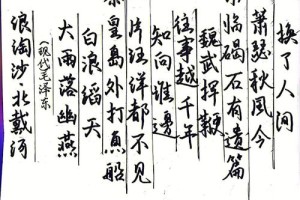 浪淘沙·北戴河
现代毛泽东
大雨落幽燕
白浪滔天
皇島外打魚船
片汪洋都不見
知向誰邊
往事越千年
魏武揮鞭
臨碣石有遺篇
蕭瑟秋風今
換了人间